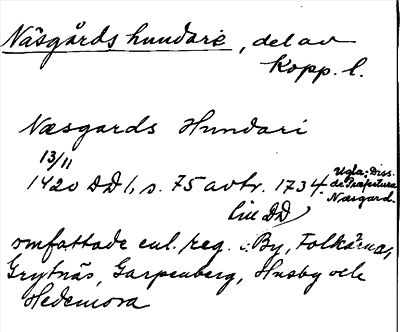 Näsgårds hundare, del av
Kopp. l.
Næsgards Hundari
13/11
1420 DD 1, s. 75 avtr. 1734. Ugla: Diss.
de Præfectura
Næsgard.
till DD
omfattade enl. reg. : By, Folkärna,
Grytnäs, Garpenberg, Husby och
Hedemora